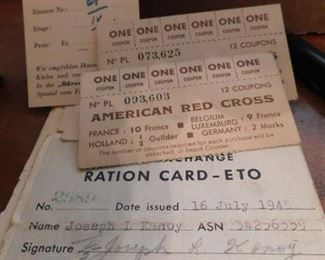 Zimmer Nr.:
Etage:
Preis: Fr.
Wir empfehlen Ihnen
ONE ONE ONE ONE ONE ONE
COUPON COUPON COUPON COUPON COUPON COUPON
Nº PL 073,625 12 COUPONS
ONE ONE ONE ONE ONE ONE
COUPON COUPON COUPON COUPON COUPON COUPON
Nº PL 093,603 12 COUPONS
AMERICAN RED CROSS
FRANCE : 10 Francs BELGIUM LUXEMBURG : 9 Francs
HOLLAND : 1/2 Guilder GERMANY : 2 Marks
The number of coupons required for each purchase will be
found at Snack Counter.
EXCHANGE
RATION CARD-ETO
No. 2589 Date issued 16 July 1945
Name Joseph L Kenoy ASN 34256555
Signature Joseph L. Kenoy